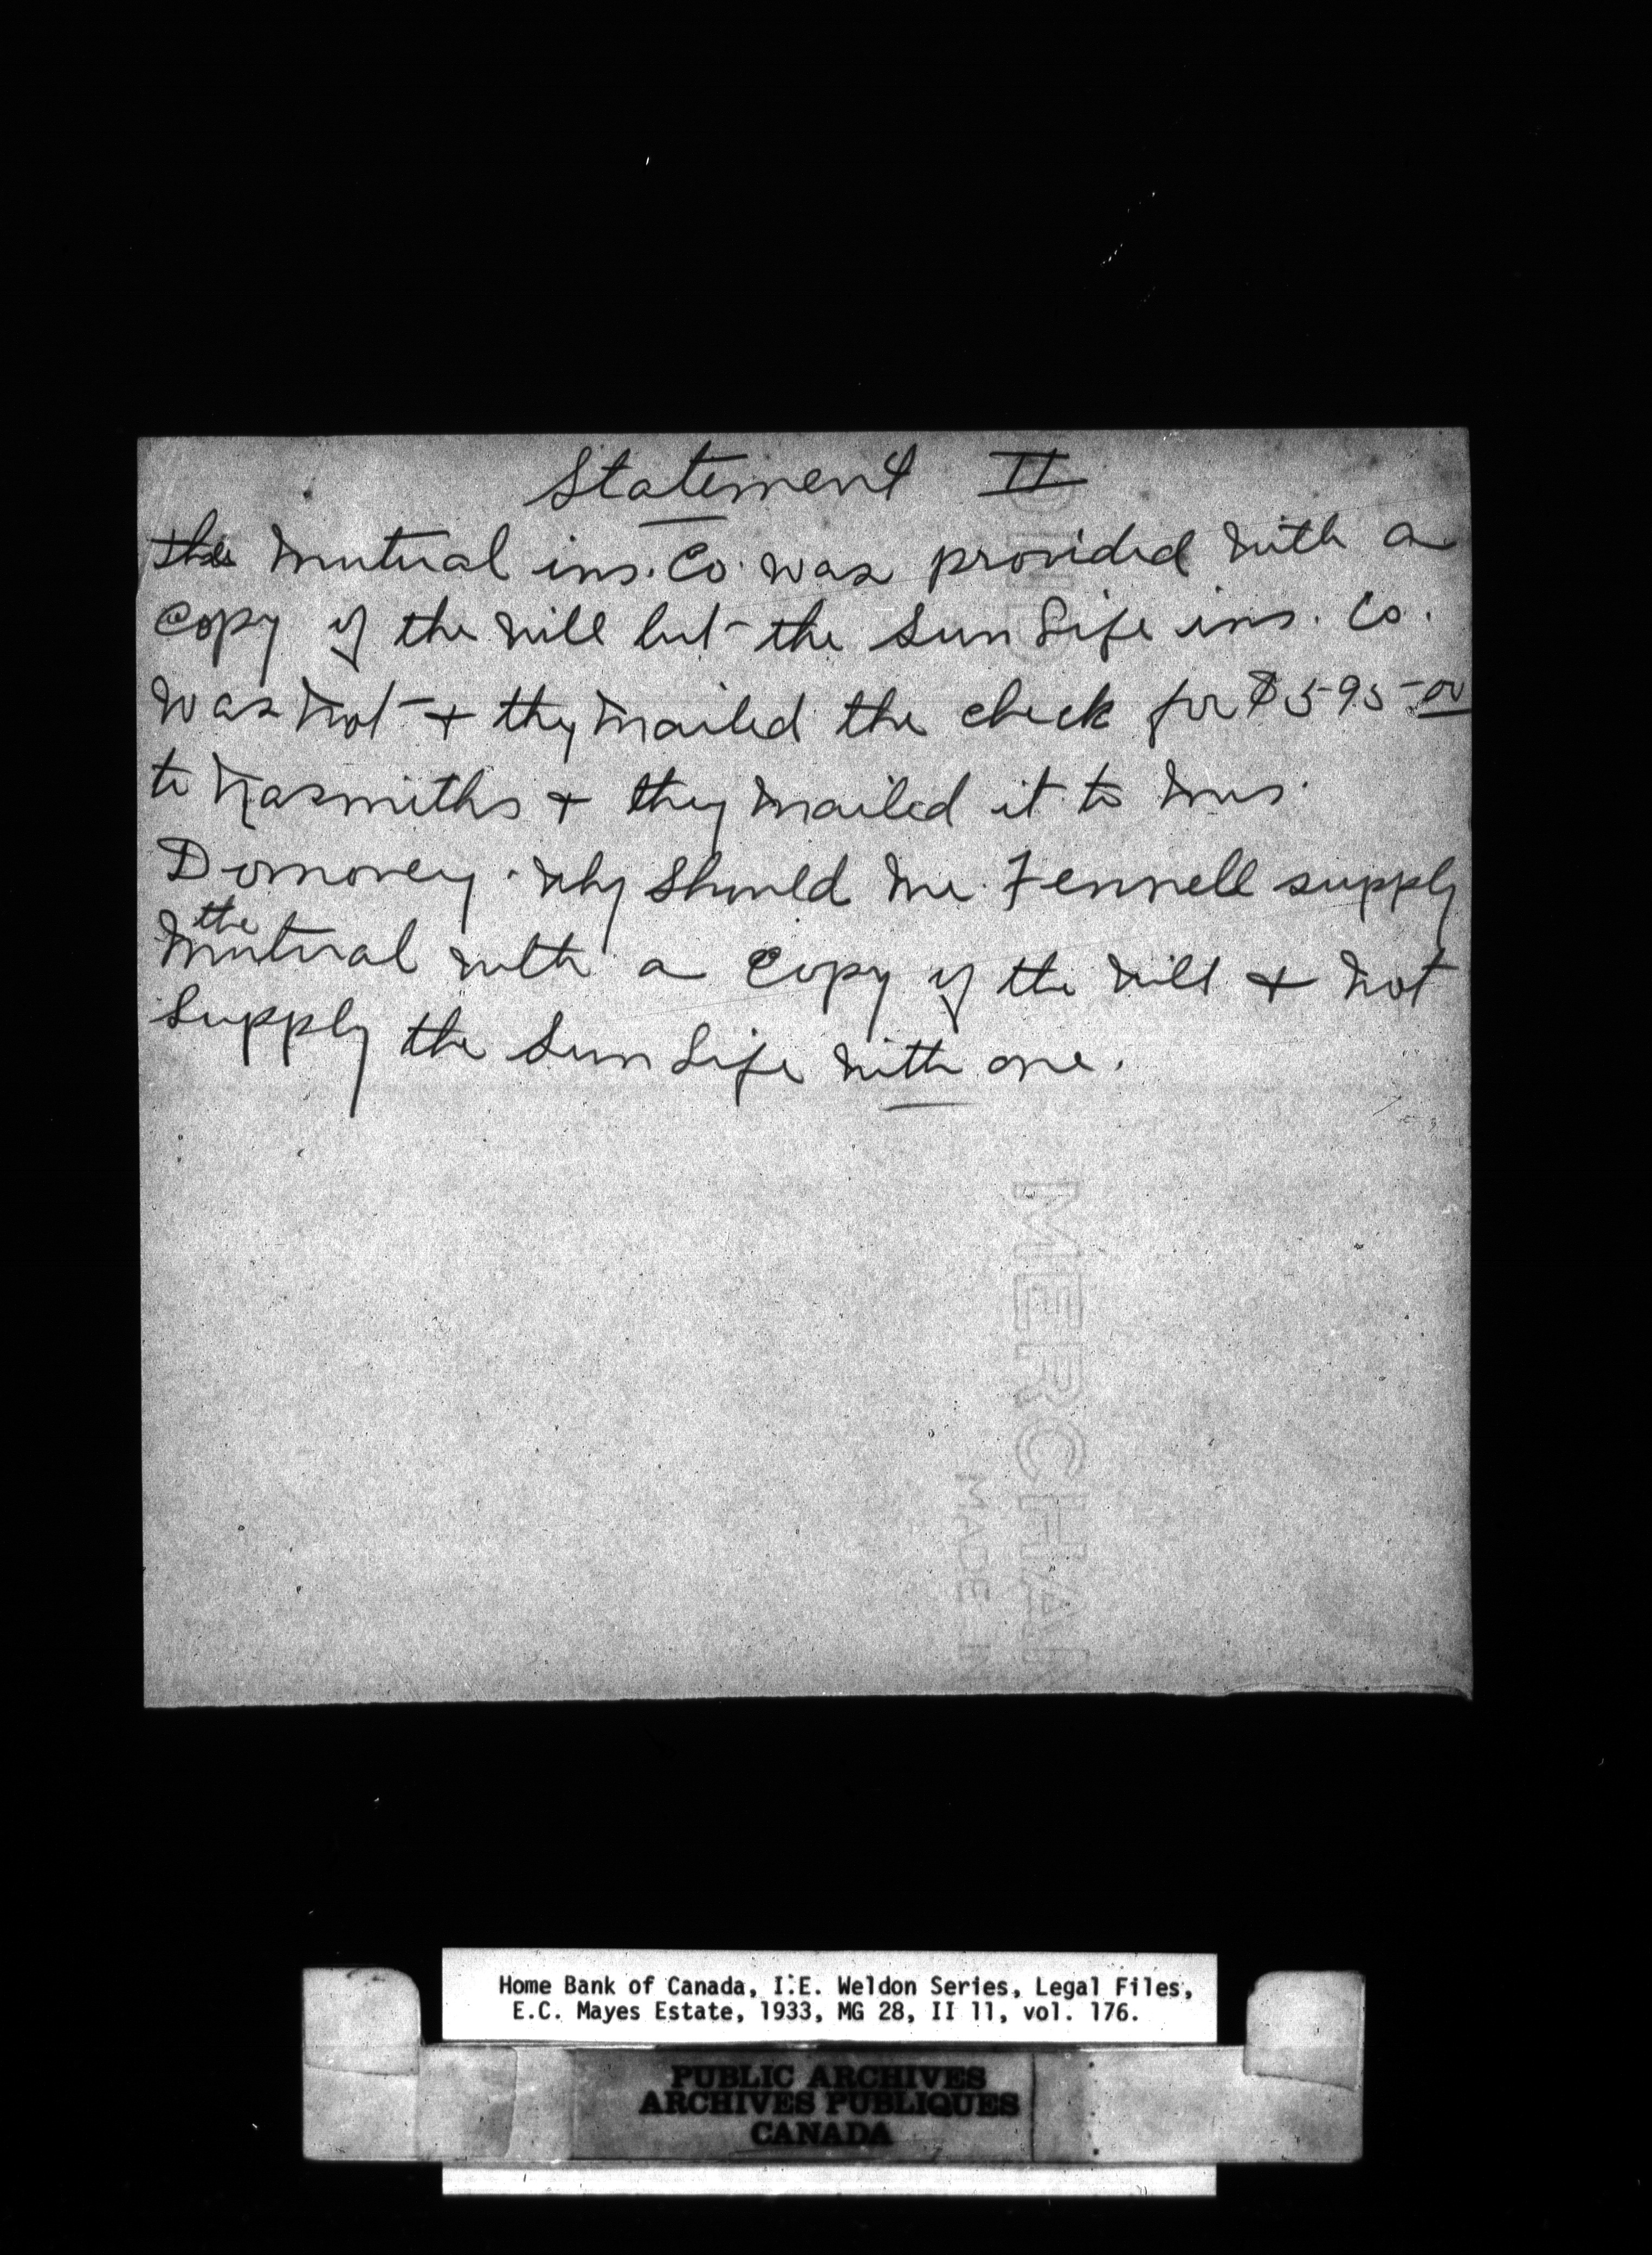 Statement II
the Mutual ins. Co. was provided with a
copy of the will but the Sun Life ins. Co.
was not + they mailed the check for $595.00
to Nasmiths + they mailed it to Mrs.
Domoney. Why should Mr. Fennell supply
the
Mutual with a copy of the will + not
supply the Sun Life with one.
MERCHAN
MADE IN
Home Bank of Canada, I.E. Weldon Series, Legal Files,
E.C. Mayes Estate, 1933, MG 28, II 11, vol. 176.
PUBLIC ARCHIVES
ARCHIVES PUBLIQUES
CANADA